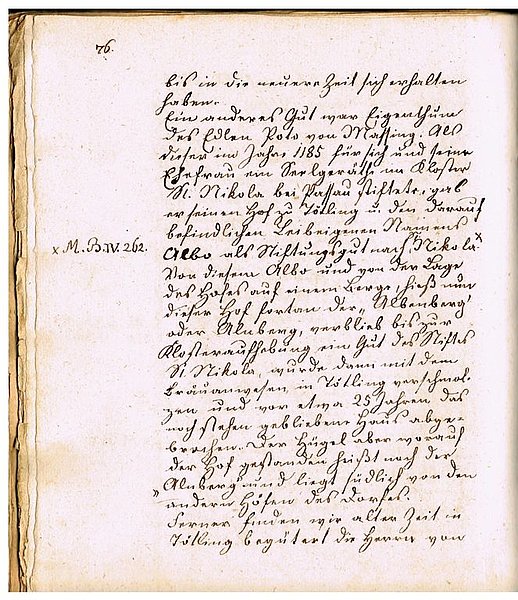 76.
bis in die neuere Zeit sich erhalten
haben.
Ein anderes Gut war Eigenthum
des Edlen Poto von Massing. Als
dieser im Jahre 1185 für sich und seine
Ehefrau ein Seelgeräthe im Kloster
St. Nikola bei Passau stiftete, gab
er seinen Hof zu Tötling u. den darauf
befindlichen Leibeigenen Namens
x M. B. IV. 262.
Albo als Stiftungsgut nach St. Nikola x
Von diesem Albo und von der Lage
des Hofes auf einem Berge, hieß nun
dieser Hof fortan der „Albenberg"
oder Alnberg, verblieb bis zur
Klosteraufhebung ein Gut des Stiftes
St. Nikola, wurde dann mit dem
Bräuanwesen in Tötling verschmol-
zen und vor etwa 25 Jahren das
noch stehen gebliebene Haus abge-
brochen. Der Hügel aber worauf
der Hof gestanden heißt noch der
„Alnberg" und liegt südlich von den
andern Höfen des Dorfes.
Ferner finden wir alter Zeit in
Tötling begütert die Herrn von